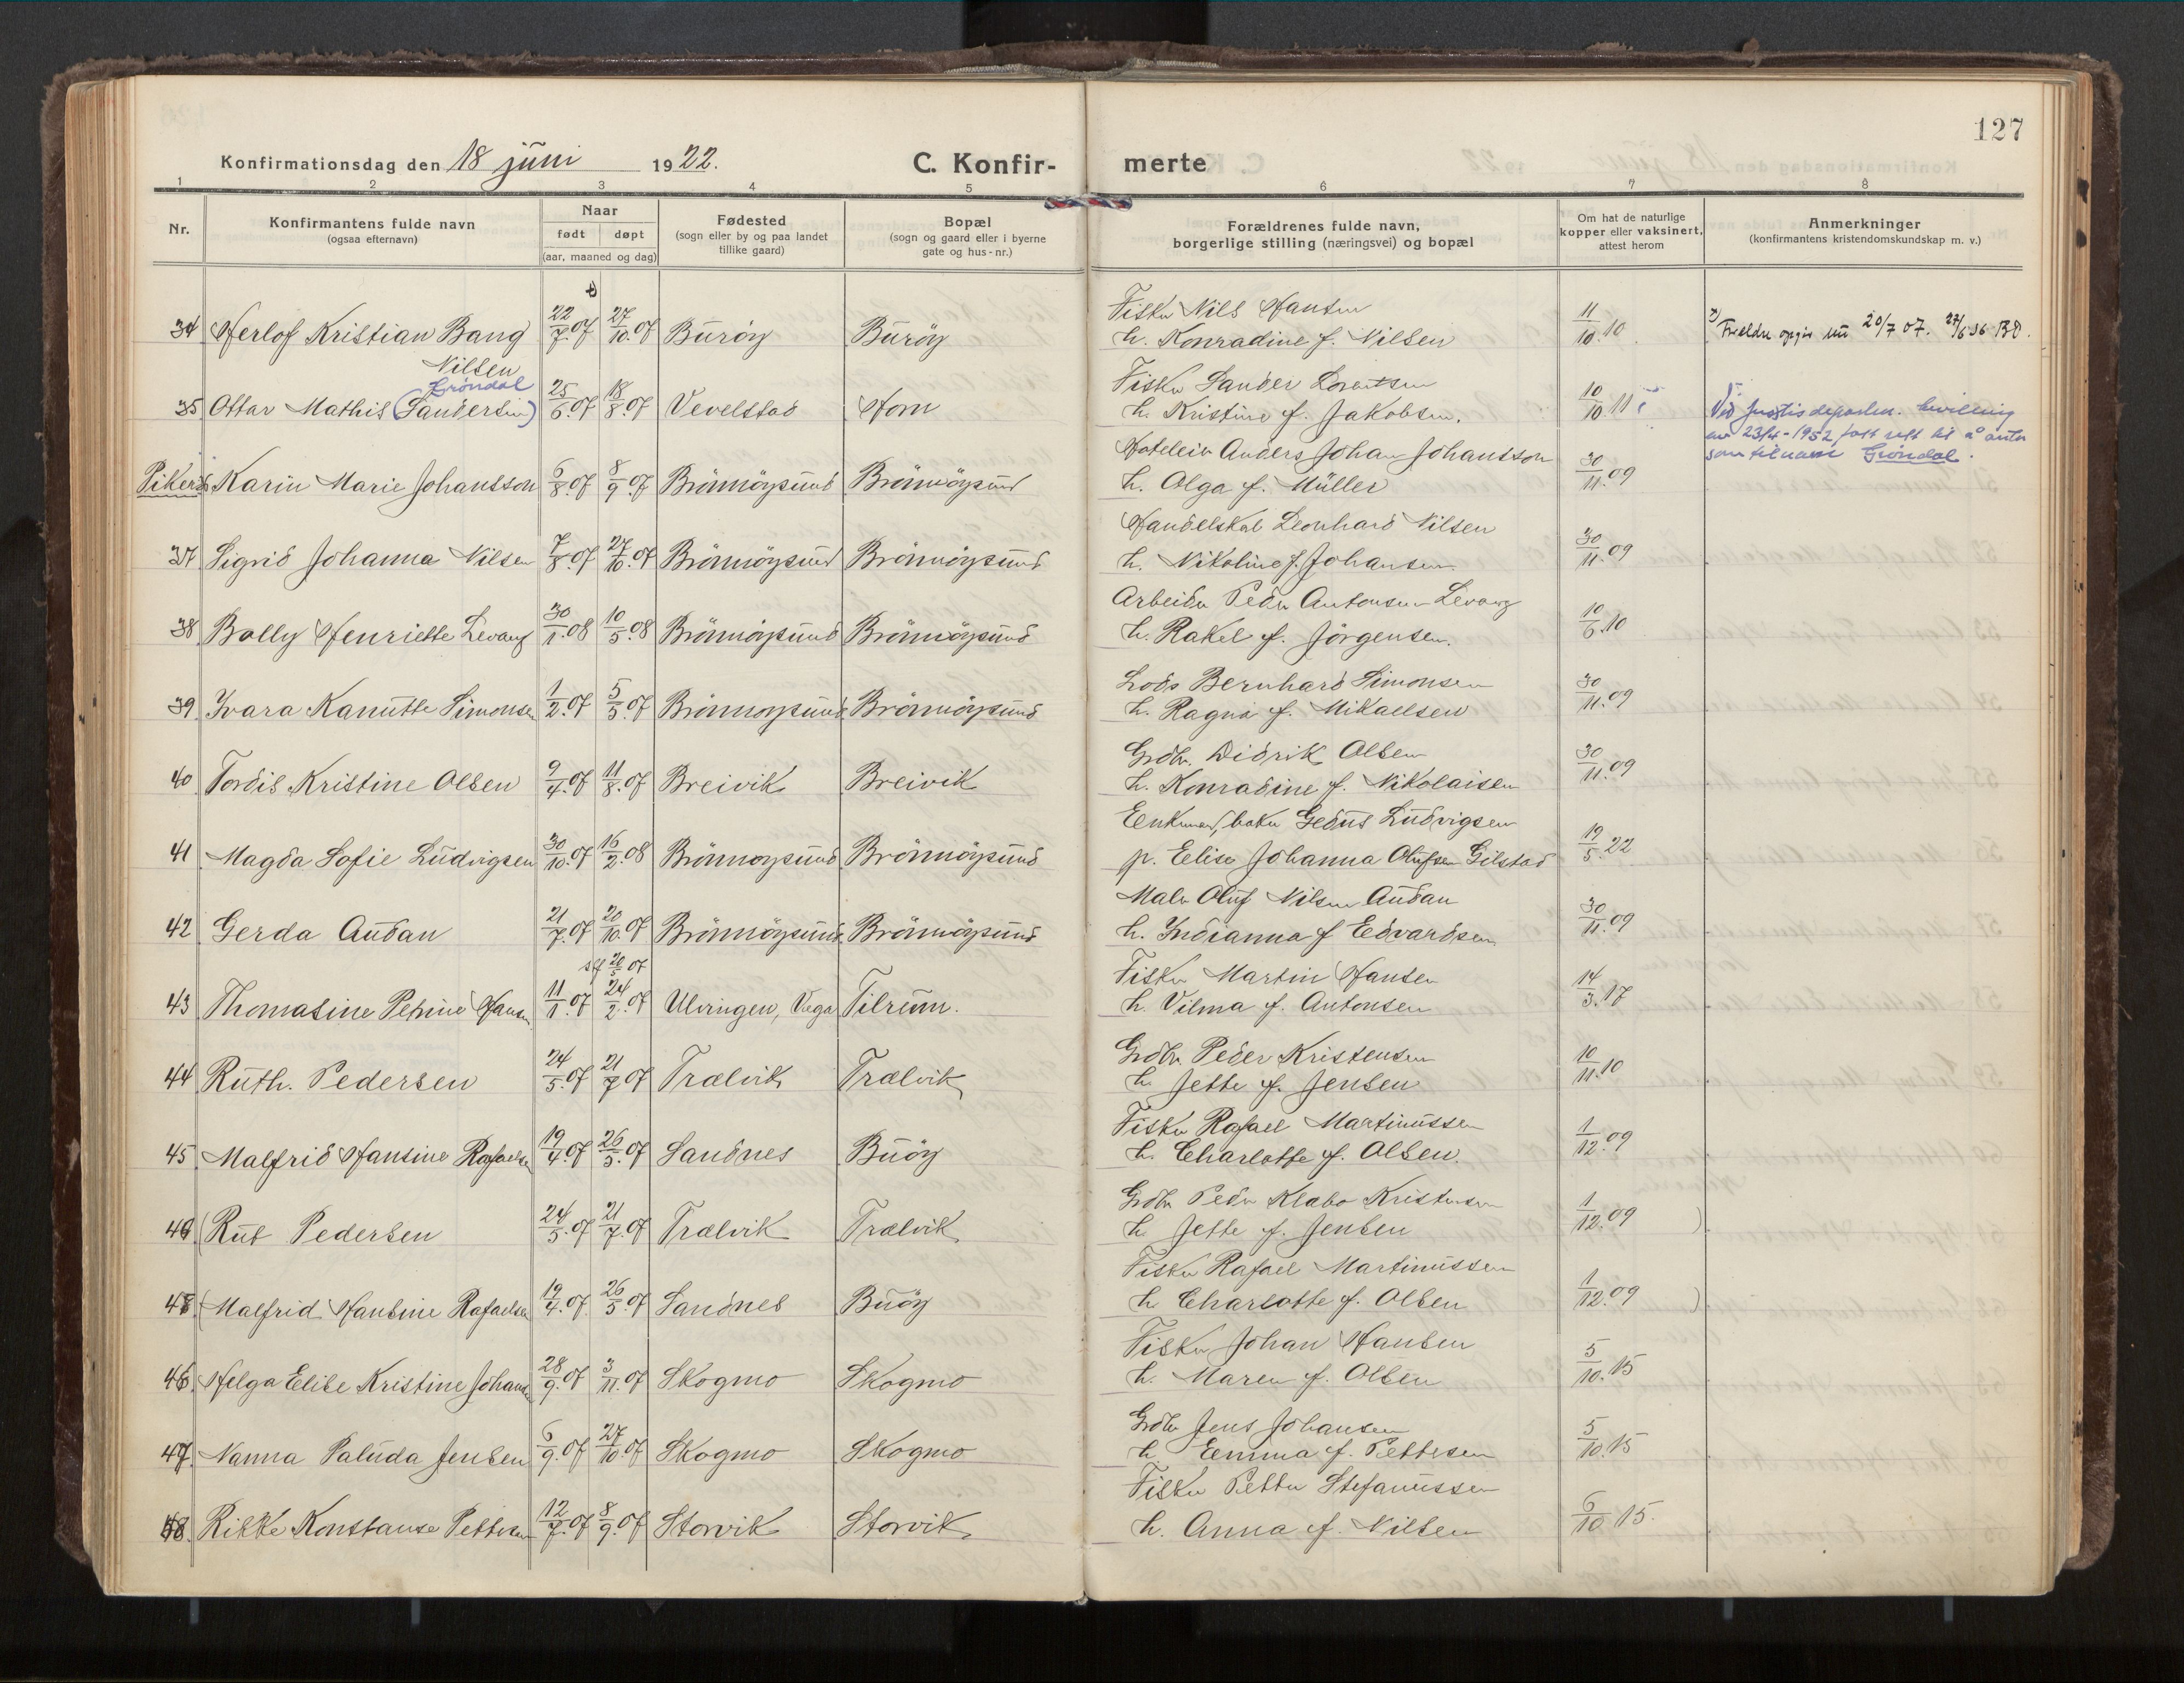 127
Konfirmationsdag den 18 juni 1922. C. Konfir- merte
1 2 3 4 5 6 7 8
Nr. Konfirmantens fulde navn (ogsaa efternavn) Naar født døpt (aar, maaned og dag) Fødested (sogn eller by og paa landet tillike gaard) Bopæl (sogn og gaard eller i byerne gate og hus-nr.) Forældrenes fulde navn, borgerlige stilling (næringsvei) og bopæl Om hat de naturlige kopper eller vaksinert, attest herom Anmerkninger (konfirmantens kristendomskundskap m. v.)
Fisker Nils Hansen
34 Herlof Kristian Bang 22/7.07 27/10.07 Buröy Buröy h. Konradine f. Nilsen 11/10.10 Foreldre opgir 20/7 07. 27/6 36
Nilsen
Gröndal Fisker Sander Lorentsen
35 Ottar Mathis (Sandersen) 25/6.07 18/8.07 Vevelstad Horn h. Kristine f. Jakobsen. 10/10.11 Ved justisdeparten. bevilling
av 23/4-1952 fått rett til å anta
som tilnavn Gröndal.
Hoteleier Anders Johan Johansson
Piker 36 Karin Marie Johansson 6/8.07 8/9.07 Brönnöysund Brönnöysund h. Olga f. Müller 30/11.09
Handelskal Leonhard Nilsen
37 Sigrid Johanna Nilsen 7/8.07 27/10.07 Brönnöysund Brönnöysund h. Nikoline f. Johansen. 30/11.09
Arbeider Peder Antonsen Levang
38 Bolly Henriette Levang 30/1.08 10/5.08 Brönnöysund Brönnöysund h. Rakel f. Jörgensen. 10/6.10
Lods Bernhard Simonsen
39 Ivara Kanutte Simonsen 1/2.07 5/5.07 Brönnöysund Brönnöysund h. Ragna f. Mikaelsen 30/11.09
Grdbr. Didrik Olsen
40 Tordis Kristine Olsen 9/4.07 11/8.07 Breivik Breivik h. Konradine f. Nikolaisen 30/11.09
Enkemand, baker Gedus Ludvigsen
41 Magda Sofie Ludvigsen 30/10.07 16/2.08 Brönnöysund Brönnöysund p. Elise Johanna Olufsen Gilstad 19/5.22
Maler Oluf Nilsen Audan
42 Gerda Audan 21/7.07 20/10.07 Brönnöysund Brönnöysund h. Indianna f Edvardsen 30/11.09
stf 20/5 07 Fisker Martin Hansen
43 Thomasine Petrine Hansen 11/1.07 24/2.07 Ulvingen, Vega Tilrem. h. Vilma f. Antonsen 14/3.17
Grdbr Peder Kristensen
44 Ruth. Pedersen 24/5.07 21/7 07 Trælvik Trælvik h. Jette f. Jensen 10/11.10
Fisker Rafael Martinussen
45 Malfrid Hansine Rafaelsen 19/4.07 26/5.07 Sandnes Buöy h. Charlotte f. Olsen. 1/12.09
Grdbr Peder Klabo Kristensen
46 (Rut Pedersen 24/5.07 21/7.07 Trælvik Trælvik h. Jette f. Jensen 1/12.09 )
Fisker Rafael Martinussen
47 (Malfrid Hansine Rafaelsen 19/4.07 26/5.07 Sandnes Buöy h Charlotte f. Olsen 1/12.09 )
Fisker Johan Hansen
46 Helga Elise Kristine Johansen 28/9.07 3/11.07 Skogmo Skogmo h. Maren f. Olsen 5/10.15
Grdbr Jens Johansen
47. Nanna Paluda Jensen 6/9.07 27/10.07 Skogmo Skogmo h. Emma f. Pettersen 5/10.15
Fisker Petter Stefanussen
48. Rikke Konstanse Pettersen 12/7.07 8/9.07 Storvik Storvik h. Anna f. Nilsen 6/10 15.